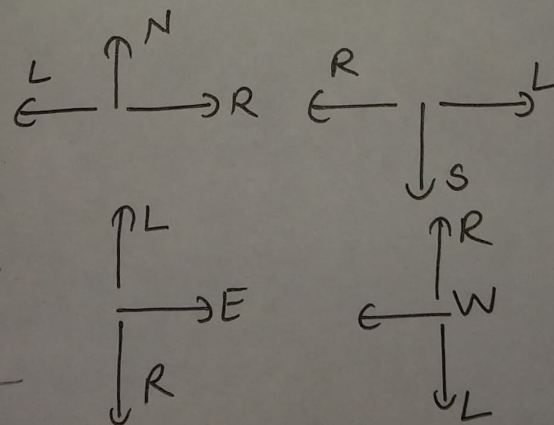 N
L
R
R
L
S
L
E
R
R
W
L